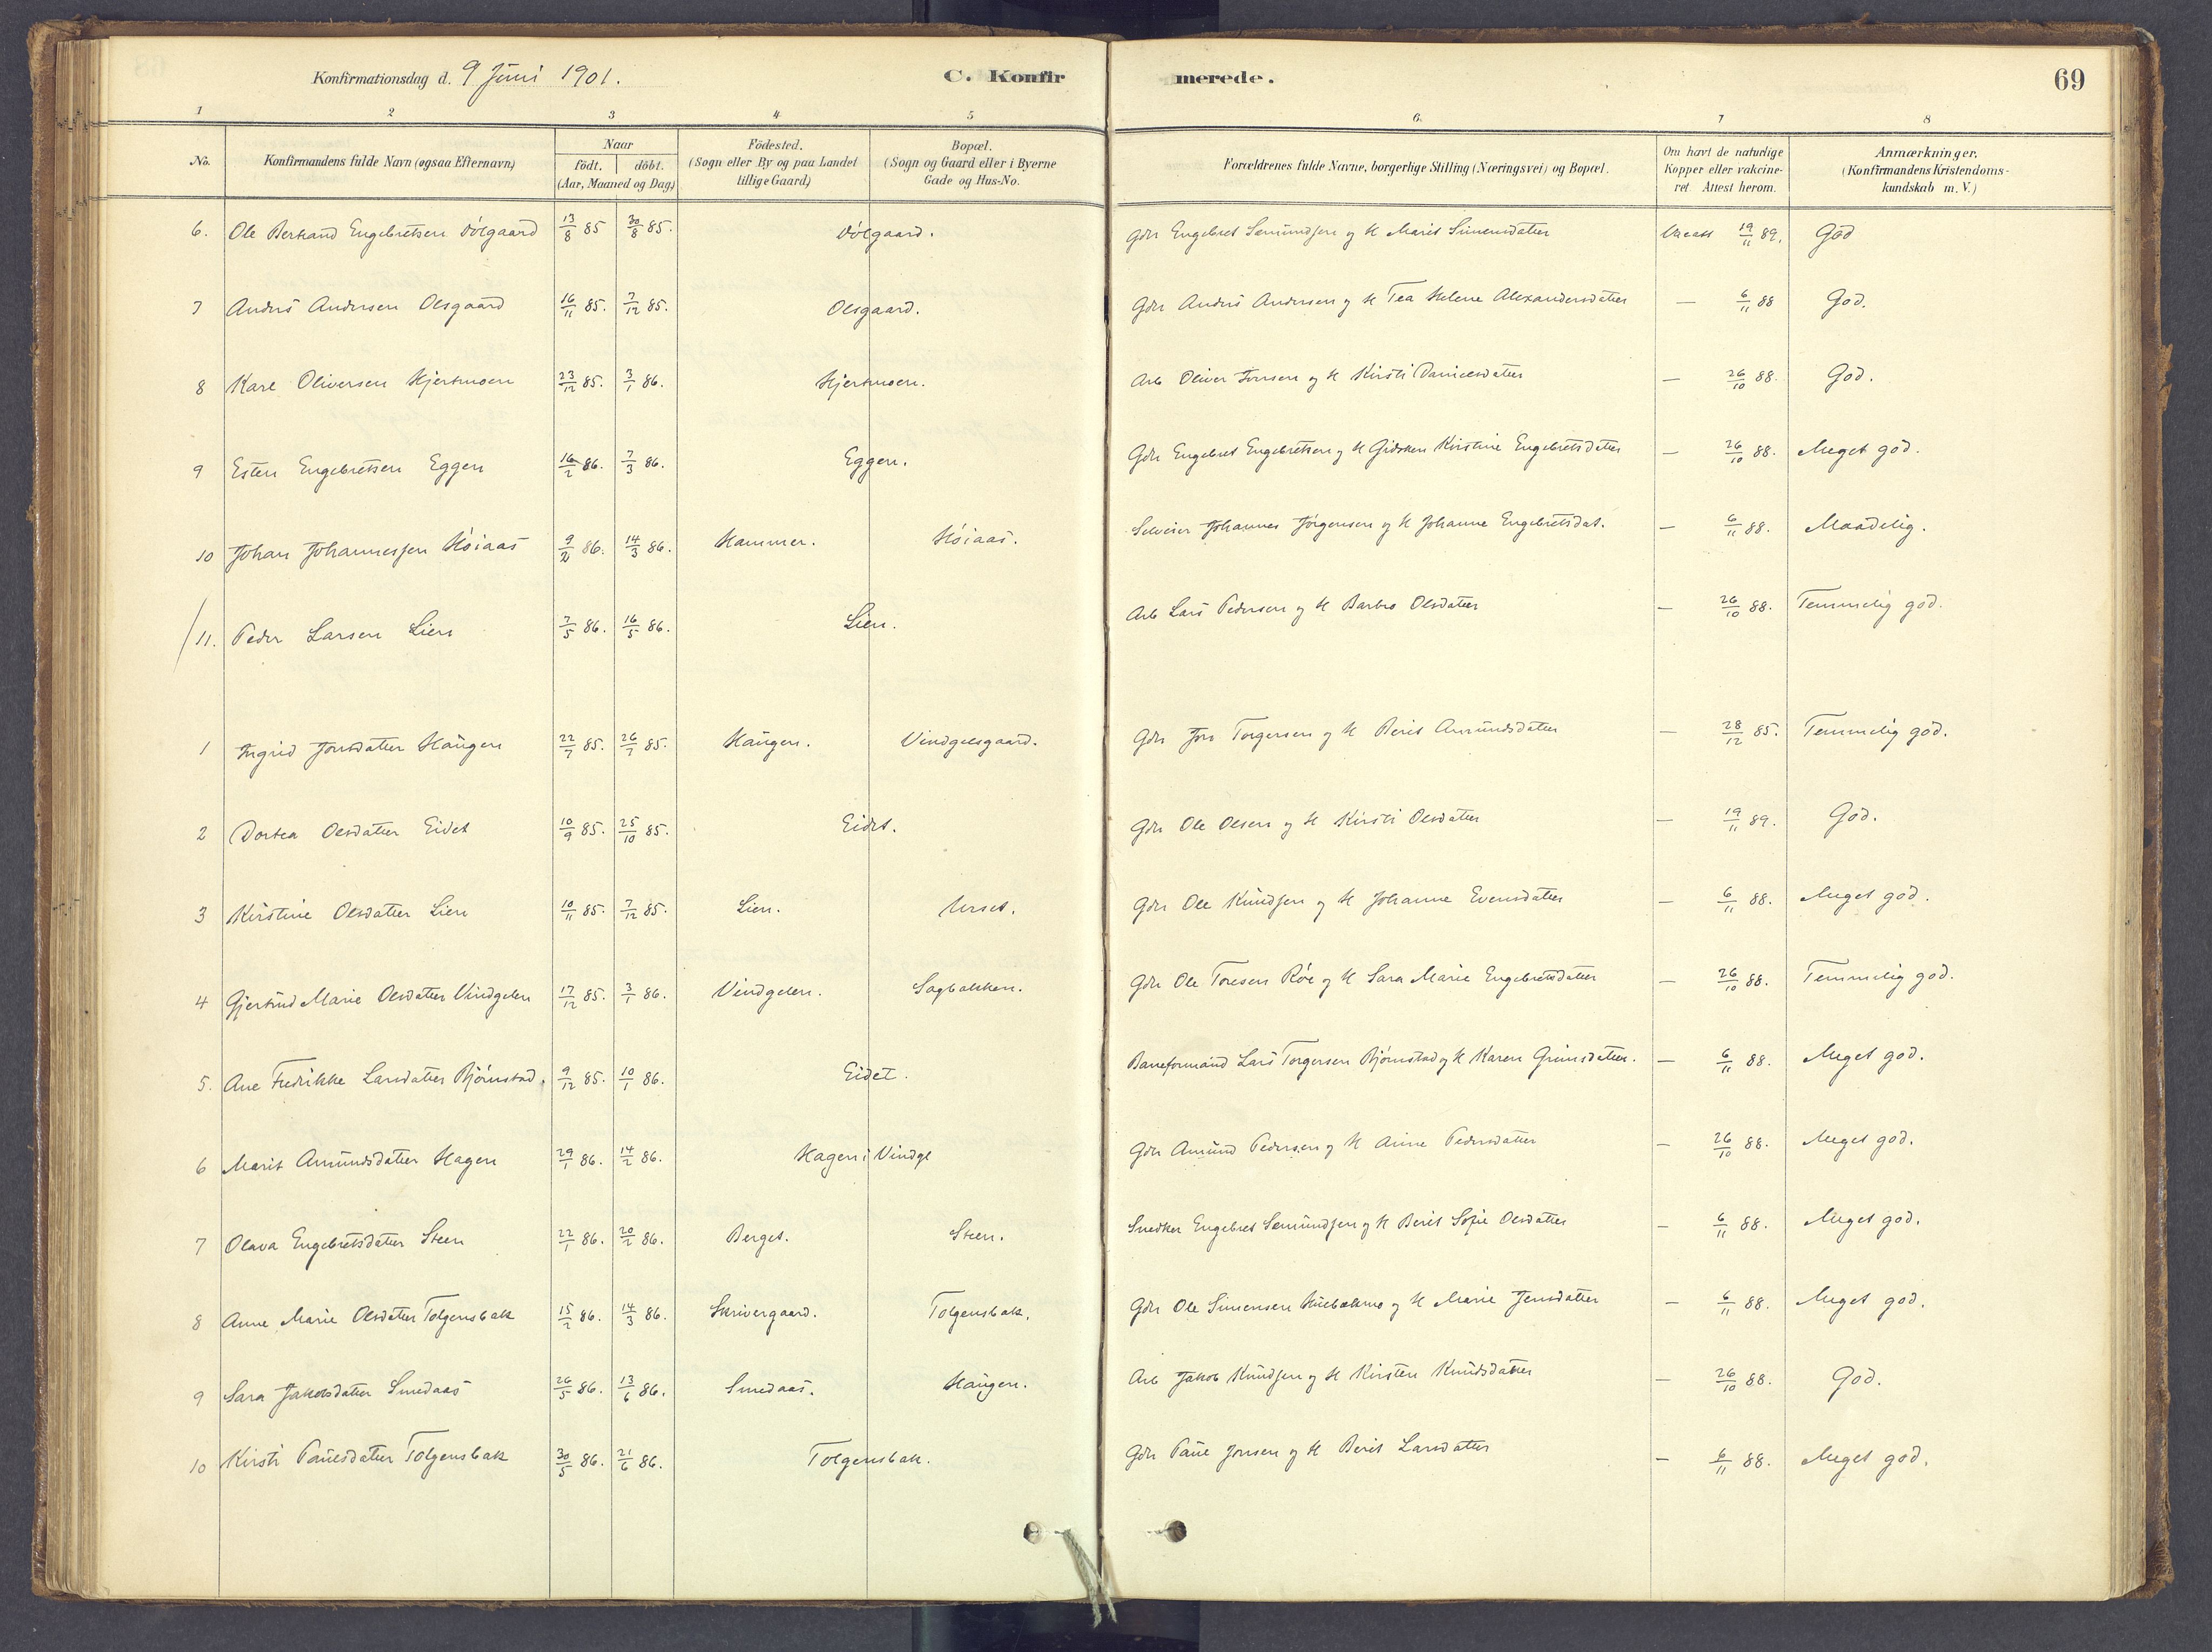 Konfirmationsdag d. 9 Juni 1901.
C. Konfir
merede.
69
1 2 3 4 5 6. 7 8
No. Konfirmandens fulde Navn (ogsaa Efternavn) Naar födt. döbt. (Aar, Maaned og Dag) Födested. (Sogn eller By og paa Landet tillige Gaard) Bopæl. (Sogn og Gaard eller i Byerne Gade og Hus-No. Forældrenes fulde Navne, borgerlige Stilling (Næringsvei) og Bopæl. Om havt de naturlige Kopper eller vakcineret. Attest herom. Anmærkninger. (Konfirmandens Kristendomskundskab m. V.)
6. Ole Bertrand Engebretsen Vólgaard 13/8 85 30/8 85. Vólgaard. Gdr Engebret Semundsen og H Marit Simensdatter Vacc att 19/11 89. God
7 Anders Andersen Olsgaard 16/11 85. 7/12 85. Olsgaard. Gdr Anders Andersen og H Tea Helene Alexandersdatter — 6/11 88 God.
8 Karl Oliversen Hjertmoen 23/12 85. 3/1 86. Hjertmoen. Arb Oliver Jonsen og H Kirsti Danielsdatter — 26/10 88. God.
9 Esten Engebretsen Eggen 16/2 86. 7/3 86. Eggen. Gdr Engebret Engebretsen og H Gidsken Kirstine Engebretsdatter — 26/10 88. Meget god.
10 Johan Johannessen Høiaas 9/2 86. 14/3 86. Hammer. Høiaas. Selveier Johannes Jørgensen og H Johanne Engebretsdat. — 6/11 88. Maadelig.
11. Peder Larsen Lien 7/5 86. 16/5 86. Lien. Arb Lars Pedersen og H Barbro Olsdatter — 26/10 88. Temmelig god.
1 Ingrid Jonsdatter Haugen 22/7 85. 26/7 85. Haugen. Vindgelsgaard. Gdr Jon Torgersen og H Berit Amundsdatter — 28/12 85. Temmelig god.
2 Dortea Olsdatter Eidet 10/9 85. 25/10 85. Eidet. Gdr Ole Olsen og H Kirsti Olsdatter — 19/11 89. God.
3 Kirstine Olsdatter Lien 10/11 85. 7/12 85. Lien. Urset. Gdr Ole Knudsen og H Johanne Evensdatter — 6/11 88. Meget god.
4 Gjertrud Marie Olsdatter Vindgelen 17/12 85. 3/1 86. Vindgelen. Sagbakken. Gdr Ole Toresen Røe og H Sara Marie Engebretsdatter — 26/10 88. Temmelig god.
5. Ane Fredrikke Larsdatter Bjørnstad. 9/12 85. 10/1 86. Eidet. Baneformand Lars Torgersen Bjørnstad og H Karen Grimsdatter. — 6/11 88. Meget god.
6 Marit Amundsdatter Hagen 29/1 86. 14/2 86. Hagen i Vindgl Gdr Amund Pedersen og H Anne Pedersdatter — 26/10 88. Meget god.
7 Olava Engebretsdatter Steen 22/1 86. 20/2 86. Berget. Steen. Snedker Engebret Semundsen og H Berit Sofie Olsdatter — 6/11 88. Meget god.
8 Anne Marie Olsdatter Tolgensbak 15/2 86. 14/3 86. Skrivergaard. Tolgensbak. Gdr Ole Simensen og H Marie Jensdatter — 6/11 88. Meget god.
9 Sara Jakobsdatter Smedaas 26/5 86. 13/6 86. Smedaas. Haugen. Arb Jakob Knudsen og H Kirsten Knudsdatter — 26/10 88. God.
10 Kirsti Paulsdatter Tolgensbak 30/5 86. 21/6 86. Tolgensbak. Gdr Paul Jonsen og H Berit Larsdatter — 6/11 88. Meget god.